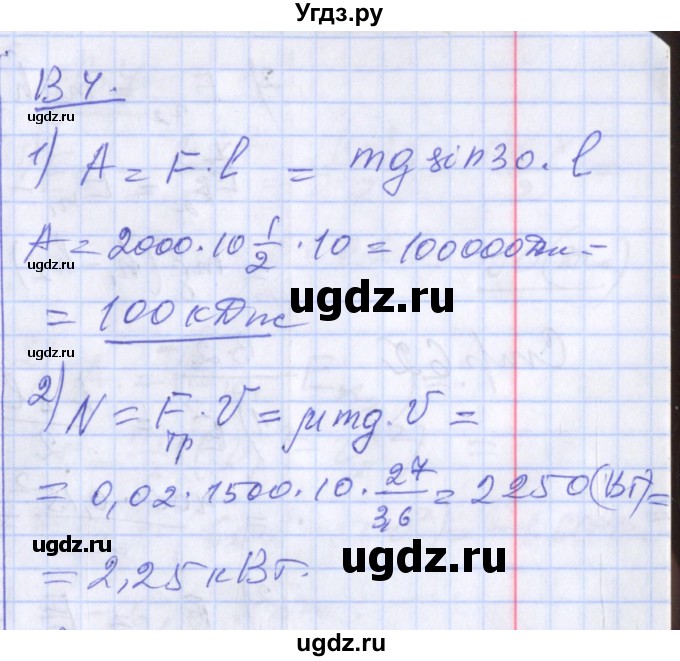 Угдз.ру
В 4.
ugdz.ru
1) A = F·l = mg sin30·l
ugdz.ru
A = 2000·10 1/2 ·10 = 100000Дж =
ugdz.ru
= 100 кДж
ugdz.ru
ugdz.ru
2) N = Fтр·V = μmg·V =
ugdz.ru
= 0,02·1500·10· 27/3,6 = 2250(Вт) =
ugdz.ru
ugdz.ru
= 2,25 кВт.
ugdz.ru
ugdz.ru